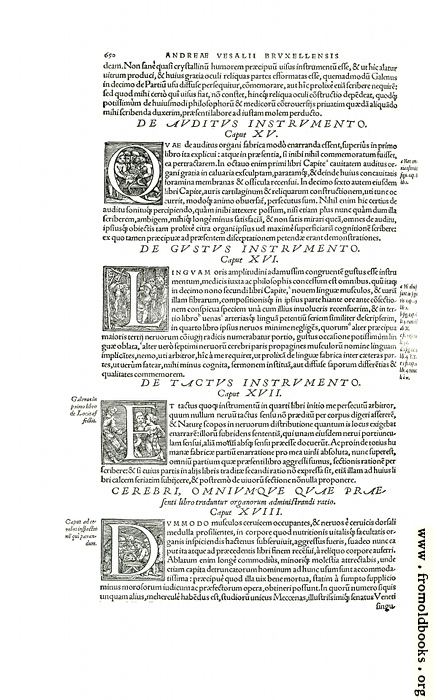 650 ANDREAE VESALII BRVXELLENSIS
deam. Non sanè quasi crystallinũ humorem præcipuũ uisus instrumentũ esse, & ut hic alatur
uitrum produci, & huius gratia oculi reliquas partes efformatas esse, quemadmodũ Galenus
in decimo de Partiũ usu diffusè persequitur, cõmemorare, aut hîc prolixè etiã scribere nequirẽ:
sed quod mihi certò quî uisus fiat, nõ constet, hincq́; reliqua oculi cõstructio depẽdeat, quodq́;
potissimùm de huiusmodi philosophorũ & medicorũ cõtrouersijs priuatim quædã aliquãdo
mihi scribenda duxerim, præsenti labore ad iustam molem perducto.
DE AVDITVS INSTRVMENTO.
Caput XV.
QVAE de auditus organi fabrica modò enarranda essent, superiùs in primo
libro ista explicui: atque in præsentia, si inibi nihil commemoratum fuisset,
ea pertractarem. In octauo enim primi libri Capite cauitatem auditus or-
gani gratia in caluaria exsculptam, paratamq́;, & deinde huius concauitatis
foramina membranas & ossicula recensui. In decimo sexto autem eiusdem
libri Capite, auris cartilaginum & reliquarum constructionem, uti nunc oc
currit, modò s animo obuersãt, persecutus sum. Nihil enim hîc certius de
auditu sonitusq́; percipiendo, quàm inibi attexere possum, nisi etiam plus nunc quàm dum illa
scriberem, ambigem, mihiq́; longè minus satisfaciã, & non satis mirari queã, omnes de auditu,
ipsiusq́; obiectis tam prolixè citra organi ipsius uel maximè superficiariã cognitionẽ scribere:
ex quo tamen præcipuæ ad præsentem disceptationem petendæ erant demonstrationes.
DE GVSTVS INSTRVMENTO.
Caput XVI.
LINGVAM oris amplitudini adamussim congruentẽ gustus esse instru
mentum, medicis iuxta ac philosophis concessum est omnibus. quũ itaq́;
in decimo nono secundi libri Capite, nouem linguæ musculos, & uariã
illam fibrarum, compositionisq́; in ipsius parte hiante ore ante cõsectio-
nem conspicua speciem unà cum illius inuolucris recensuerim, & in ter-
tio libro uenas arteriasq́; linguã petentiũ seriem similiter scripserim,
in quarto libro ipsius neruos minimè negligẽs, quorum alter præcipua
maioris tertij neruorum cõiugij radicis numerabatur portio, gustus occasione potissimùm lin
guæ oblata, alter uerò septimi neruorũ cerebri paris propagines musculorũ nomine linguam
implicãtes, nemo, uti arbitror, hîc à me requiret, ut prolixã de linguæ fabrica inter cæteras par-
tes, ut uerùm fatear, mihi minus cognita, sermonem instituã, aut diffusè saporum differẽtias &
qualitates commemorem.
DE TACTVS INSTRVMENTO.
Caput XVII.
Galenus in
primo libro
de Locis af
fectis.
ET tactus quoq́; instrumentũ in quarti libri initio me persecutũ arbitror,
quum nullum neruũ tactus sensu nõ præditũ per corpus digeri assererẽ,
& Naturę scopos in neruorum distributione quantum is locus exigebat
enarrarẽ: illorũ subridens sententiã, qui unam eiusdem nerui portiuncu-
lam sensui, aliã motui absq́; sensu præesse docuerũt. Ac proinde totius hu
manæ fabricæ partiũ enarratione pro mea uirili absoluta, nunc superest,
omniũ partium quæ præsenti libro aggressi sumus, sectionis rationẽ per-
scribere: & si cuius partis in alijs libris traditæ secandi ratio nõ expressa sit, etiã illam ad huius li
bri calcem seriatim subijcere, & postremò de uiuorũ sectione nõnulla proponere.
CEREBRI, OMNIVMQVE QVAE PRAE-
senti libro traduntur organorum administrandi ratio.
Caput XVIII.
Caput ad ce-
rebri sectio
nẽ quî paran-
dum.
DVMMODO musculos ceruicem occupantes, & neruos è ceruicis dorsali
medulla prosilientes, in corpore quod nutritionis uitalisq́; facultatis or-
ganis inspiciendis hactenus subseruiuit, aggressus fueris, suadeo nunc ca
put ita atque ad præcedentis libri finem recẽsuì, à reliquo corpore auferri.
Ablatum enim longè commodiùs, minoriq́; molestia attrectabis, unde
etiam capita detruncatorum hominum ad hunc usum sunt accommoda-
tissima: præcipuè quod illa uix bene mortua, statim à sumpto supplicio
minus morosorum iudicum ac præfectorum opera, obtineri possunt. In quorũ numero si quis
unquam alius, meherculè habẽdus est, studiorũ unicus Mecœnas, illustrissimiq́; senatus Veneti
singu-
www.fromoldbooks.org